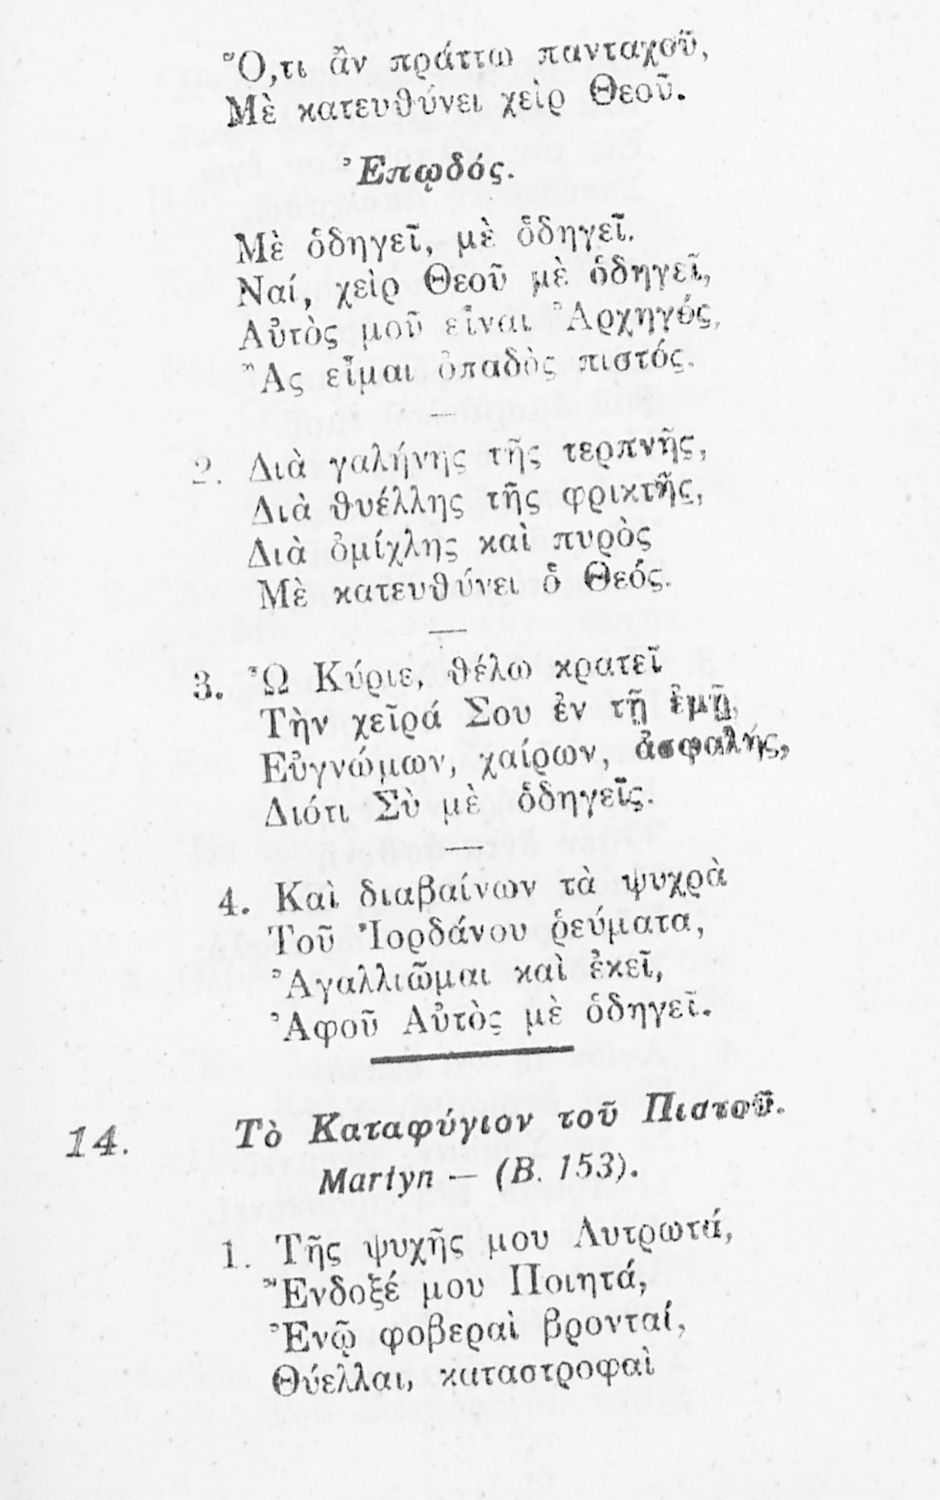 Ὅ,τι ἂν πράττω πανταχοῦ,
Μὲ κατευθύνει χεὶρ Θεοῦ.
Ἐπῳδός.
Μὲ ὁδηγεῖ, μὲ ὁδηγεῖ.
Ναί, χεὶρ Θεοῦ μὲ ὁδηγεῖ,
Αὐτὸς μοῦ εἶναι Ἀρχηγός,
Ἂς εἶμαι ὀπαδὸς πιστός.
2. Διὰ γαλήνης τῆς τερπνῆς,
Διὰ θυέλλης τῆς φρικτῆς,
Διὰ ὀμίχλης καὶ πυρὸς
Μὲ κατευθύνει ὁ Θεός.
3. Ὦ Κύριε, θέλω κρατεῖ
Τὴν χεῖρά Σου ἐν τῇ ἐμῇ,
Εὐγνώμων, χαίρων, ἀσφαλής,
Διότι Σὺ μὲ ὁδηγεῖς.
4. Καὶ διαβαίνων τὰ ψυχρὰ
Τοῦ Ἰορδάνου ῥεύματα,
Ἀγαλλιῶμαι καὶ ἐκεῖ,
Ἀφοῦ Αὐτὸς μὲ ὁδηγεῖ.
14. Τὸ Καταφύγιον τοῦ Πιστοῦ.
Martyn — (B. 153).
1. Τῆς ψυχῆς μου Λυτρωτά,
Ἔνδοξέ μου Ποιητά,
Ἐνῷ φοβεραὶ βρονταί,
Θύελλαι, καταστροφαὶ